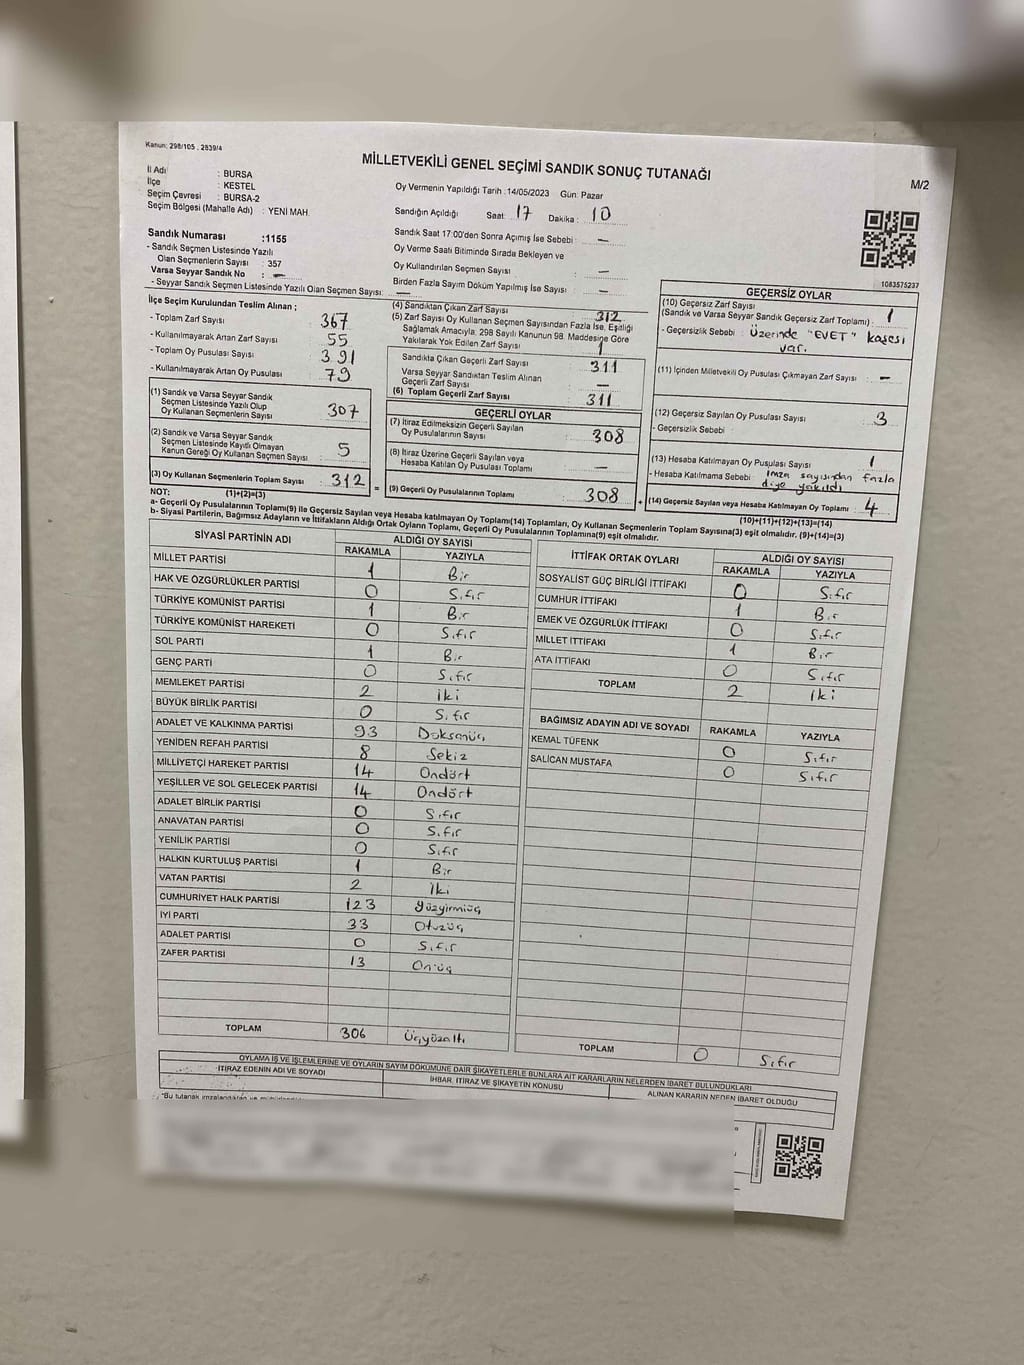 Kanun: 298/105 . 2839/4
MİLLETVEKİLİ GENEL SEÇİMİ SANDIK SONUÇ TUTANAĞI
M/2
İl Adı : BURSA
İlçe : KESTEL
Seçim Çevresi : BURSA-2
Seçim Bölgesi (Mahalle Adı) : YENİ MAH.
Oy Vermenin Yapıldığı Tarih : 14/05/2023 Gün: Pazar
Sandığın Açıldığı Saat: 17 Dakika : 10
Sandık Numarası :1155
- Sandık Seçmen Listesinde Yazılı
Olan Seçmenlerin Sayısı : 357
Varsa Seyyar Sandık No : —
- Seyyar Sandık Seçmen Listesinde Yazılı Olan Seçmen Sayısı: —
Sandık Saat 17:00'den Sonra Açılmış İse Sebebi : —
Oy Verme Saati Bitiminde Sırada Bekleyen ve
Oy Kullandırılan Seçmen Sayısı : —
Birden Fazla Sayım Döküm Yapılmış İse Sayısı : —
1083575237
İlçe Seçim Kurulundan Teslim Alınan ;
- Toplam Zarf Sayısı : 367
- Kullanılmayarak Artan Zarf Sayısı : 55
- Toplam Oy Pusulası Sayısı : 391
- Kullanılmayarak Artan Oy Pusulası : 79
(1) Sandık ve Varsa Seyyar Sandık
Seçmen Listesinde Yazılı Olup
Oy Kullanan Seçmenlerin Sayısı : 307
(2) Sandık ve Varsa Seyyar Sandık
Seçmen Listesinde Kayıtlı Olmayan
Kanun Gereği Oy Kullanan Seçmen Sayısı : 5
(3) Oy Kullanan Seçmenlerin Toplam Sayısı : 312
(4) Sandıktan Çıkan Zarf Sayısı : 312
(5) Zarf Sayısı Oy Kullanan Seçmen Sayısından Fazla İse, Eşitliği
Sağlamak Amacıyla, 298 Sayılı Kanunun 98. Maddesine Göre
Yakılarak Yok Edilen Zarf Sayısı : 1
Sandıkta Çıkan Geçerli Zarf Sayısı : 311
Varsa Seyyar Sandıktan Teslim Alınan
Geçerli Zarf Sayısı : —
(6) Toplam Geçerli Zarf Sayısı : 311
GEÇERLİ OYLAR
(7) İtiraz Edilmeksizin Geçerli Sayılan
Oy Pusulalarının Sayısı : 308
(8) İtiraz Üzerine Geçerli Sayılan veya
Hesaba Katılan Oy Pusulası Toplamı : —
= (9) Geçerli Oy Pusulalarının Toplamı : 308
GEÇERSİZ OYLAR
(10) Geçersiz Zarf Sayısı
(Sandık ve Varsa Seyyar Sandık Geçersiz Zarf Toplamı) : 1
- Geçersizlik Sebebi : Üzerinde "EVET" kaşesi
var.
(11) İçinden Milletvekili Oy Pusulası Çıkmayan Zarf Sayısı : —
(12) Geçersiz Sayılan Oy Pusulası Sayısı : 3
- Geçersizlik Sebebi :
(13) Hesaba Katılmayan Oy Pusulası Sayısı : 1
- Hesaba Katılmama Sebebi : imza sayısından fazla
diye yakıldı
+ (14) Geçersiz Sayılan veya Hesaba Katılmayan Oy Toplamı : 4
NOT: (1)+(2)=(3)
(10)+(11)+(12)+(13)=(14)
a- Geçerli Oy Pusulalarının Toplamı(9) ile Geçersiz Sayılan veya Hesaba katılmayan Oy Toplamı(14) Toplamları, Oy Kullanan Seçmenlerin Toplam Sayısına(3) eşit olmalıdır. (9)+(14)=(3)
b- Siyasi Partilerin, Bağımsız Adayların ve İttifakların Aldığı Ortak Oyların Toplamı, Geçerli Oy Pusulalarının Toplamına(9) eşit olmalıdır.
SİYASİ PARTİNİN ADI ALDIĞI OY SAYISI
RAKAMLA YAZIYLA
MİLLET PARTİSİ 1 Bir
HAK VE ÖZGÜRLÜKLER PARTİSİ 0 Sıfır
TÜRKİYE KOMÜNİST PARTİSİ 1 Bir
TÜRKİYE KOMÜNİST HAREKETİ 0 Sıfır
SOL PARTİ 1 Bir
GENÇ PARTİ 0 Sıfır
MEMLEKET PARTİSİ 2 İki
BÜYÜK BİRLİK PARTİSİ 0 Sıfır
ADALET VE KALKINMA PARTİSİ 93 Doksanüç
YENİDEN REFAH PARTİSİ 8 Sekiz
MİLLİYETÇİ HAREKET PARTİSİ 14 Ondört
YEŞİLLER VE SOL GELECEK PARTİSİ 14 Ondört
ADALET BİRLİK PARTİSİ 0 Sıfır
ANAVATAN PARTİSİ 0 Sıfır
YENİLİK PARTİSİ 0 Sıfır
HALKIN KURTULUŞ PARTİSİ 1 Bir
VATAN PARTİSİ 2 İki
CUMHURİYET HALK PARTİSİ 123 Yüzyirmiüç
İYİ PARTİ 33 Otuzüç
ADALET PARTİSİ 0 Sıfır
ZAFER PARTİSİ 13 Onüç
TOPLAM 306 Üçyüzaltı
İTTİFAK ORTAK OYLARI ALDIĞI OY SAYISI
RAKAMLA YAZIYLA
SOSYALİST GÜÇ BİRLİĞİ İTTİFAKI 0 Sıfır
CUMHUR İTTİFAKI 1 Bir
EMEK VE ÖZGÜRLÜK İTTİFAKI 0 Sıfır
MİLLET İTTİFAKI 1 Bir
ATA İTTİFAKI 0 Sıfır
TOPLAM 2 İki
BAĞIMSIZ ADAYIN ADI VE SOYADI RAKAMLA YAZIYLA
KEMAL TÜFENK 0 Sıfır
SALİCAN MUSTAFA 0 Sıfır
TOPLAM 0 Sıfır
OYLAMA İŞ VE İŞLEMLERİNE VE OYLARIN SAYIM DÖKÜMÜNE DAİR ŞİKAYETLERLE BUNLARA AİT KARARLARIN NELERDEN İBARET BULUNDUKLARI
İTİRAZ EDENİN ADI VE SOYADI İHBAR, İTİRAZ VE ŞİKAYETİN KONUSU ALINAN KARARIN NEDEN İBARET OLDUĞU
"Bu tutanak